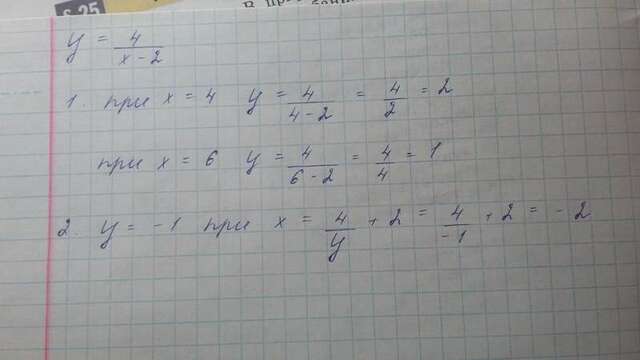 § 25
y = 4/(x - 2)
1. при x = 4 y = 4/(4 - 2) = 4/2 = 2
при x = 6 y = 4/(6 - 2) = 4/4 = 1
2. y = -1 при x = 4/y + 2 = 4/-1 + 2 = -2